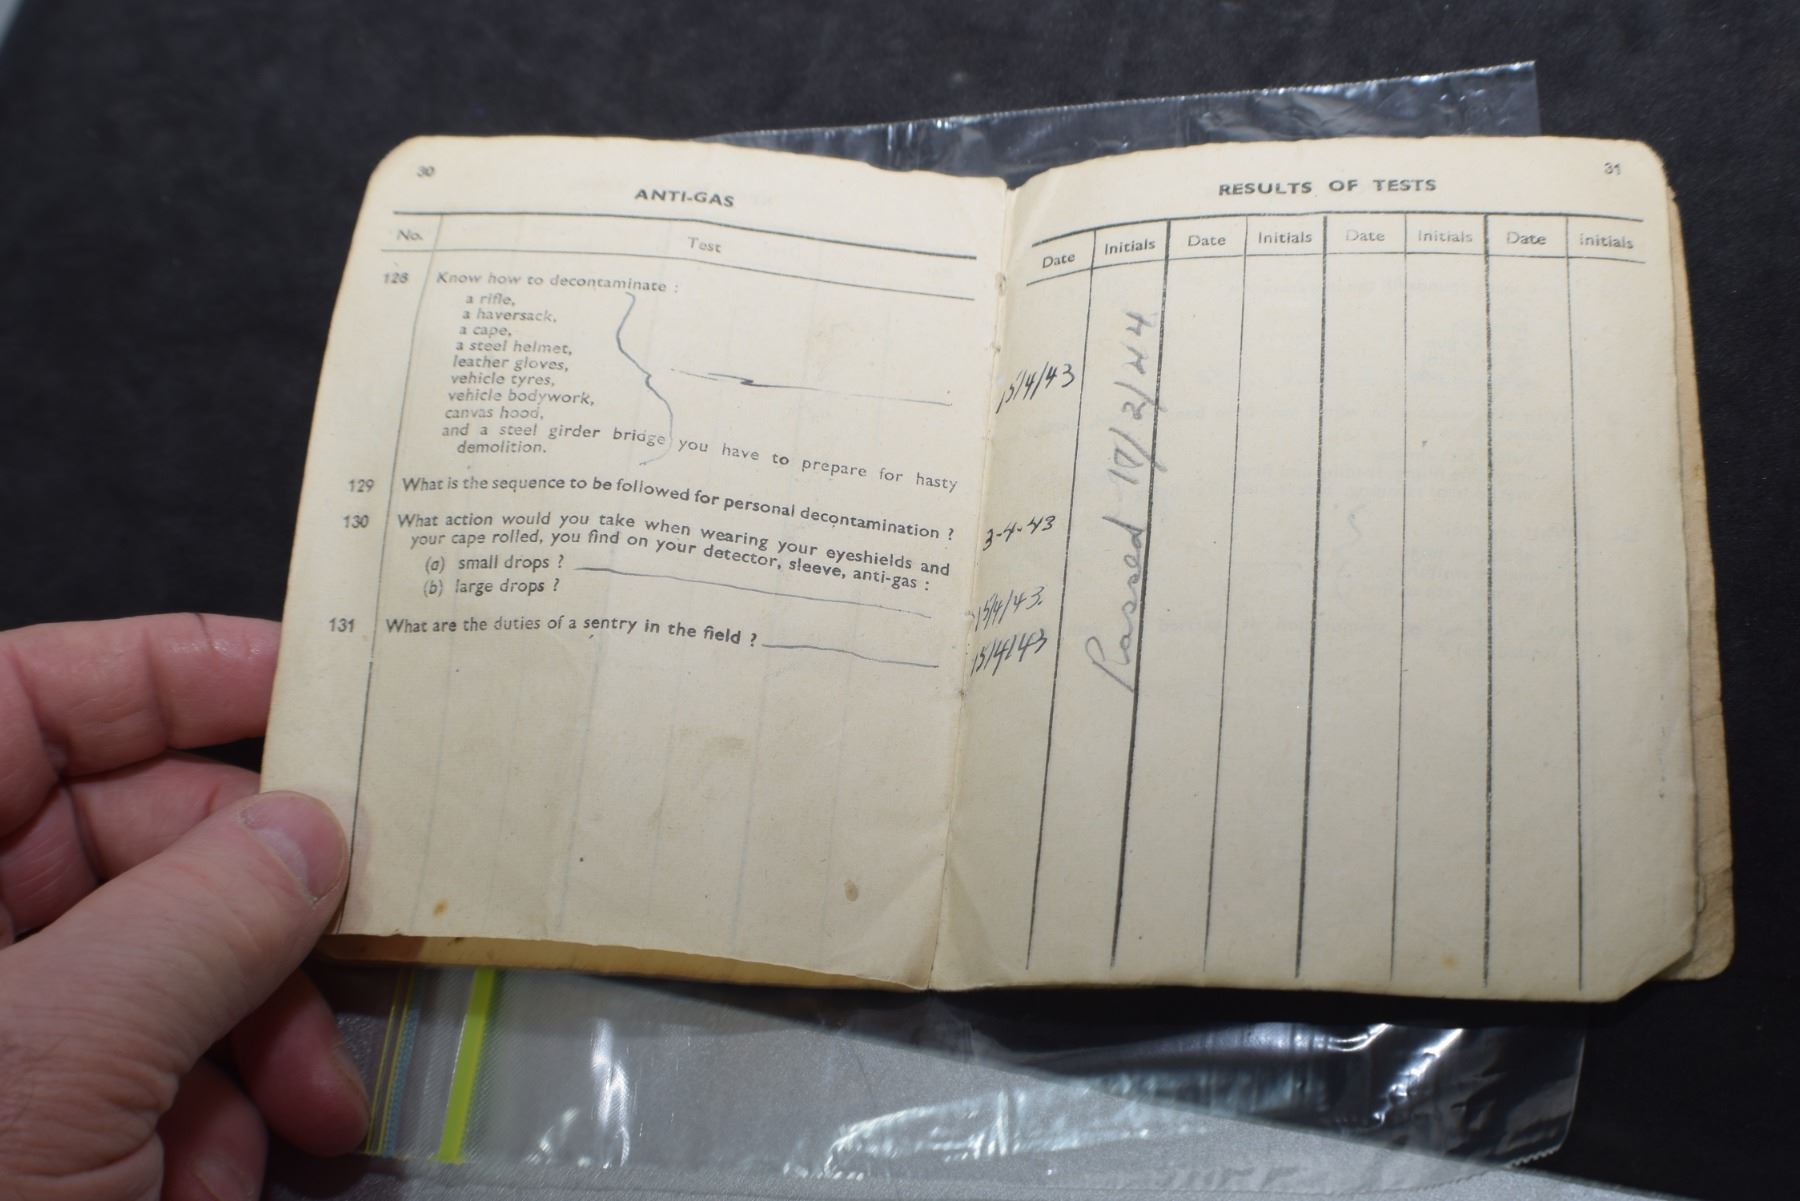 30
ANTI-GAS
No. Test
128 Know how to decontaminate :
a rifle,
a haversack,
a cape,
a steel helmet,
leather gloves,
vehicle tyres,
vehicle bodywork,
canvas hood,
and a steel girder bridge you have to prepare for hasty
demolition.
129 What is the sequence to be followed for personal decontamination ?
130 What action would you take when wearing your eyeshields and
your cape rolled, you find on your detector, sleeve, anti-gas :
(a) small drops ?
(b) large drops ?
131 What are the duties of a sentry in the field ?
31
RESULTS OF TESTS
Date Initials Date Initials Date Initials Date Initials
15/4/43
3-4-43
15/4/43.
15/4/43
Passed /2/44